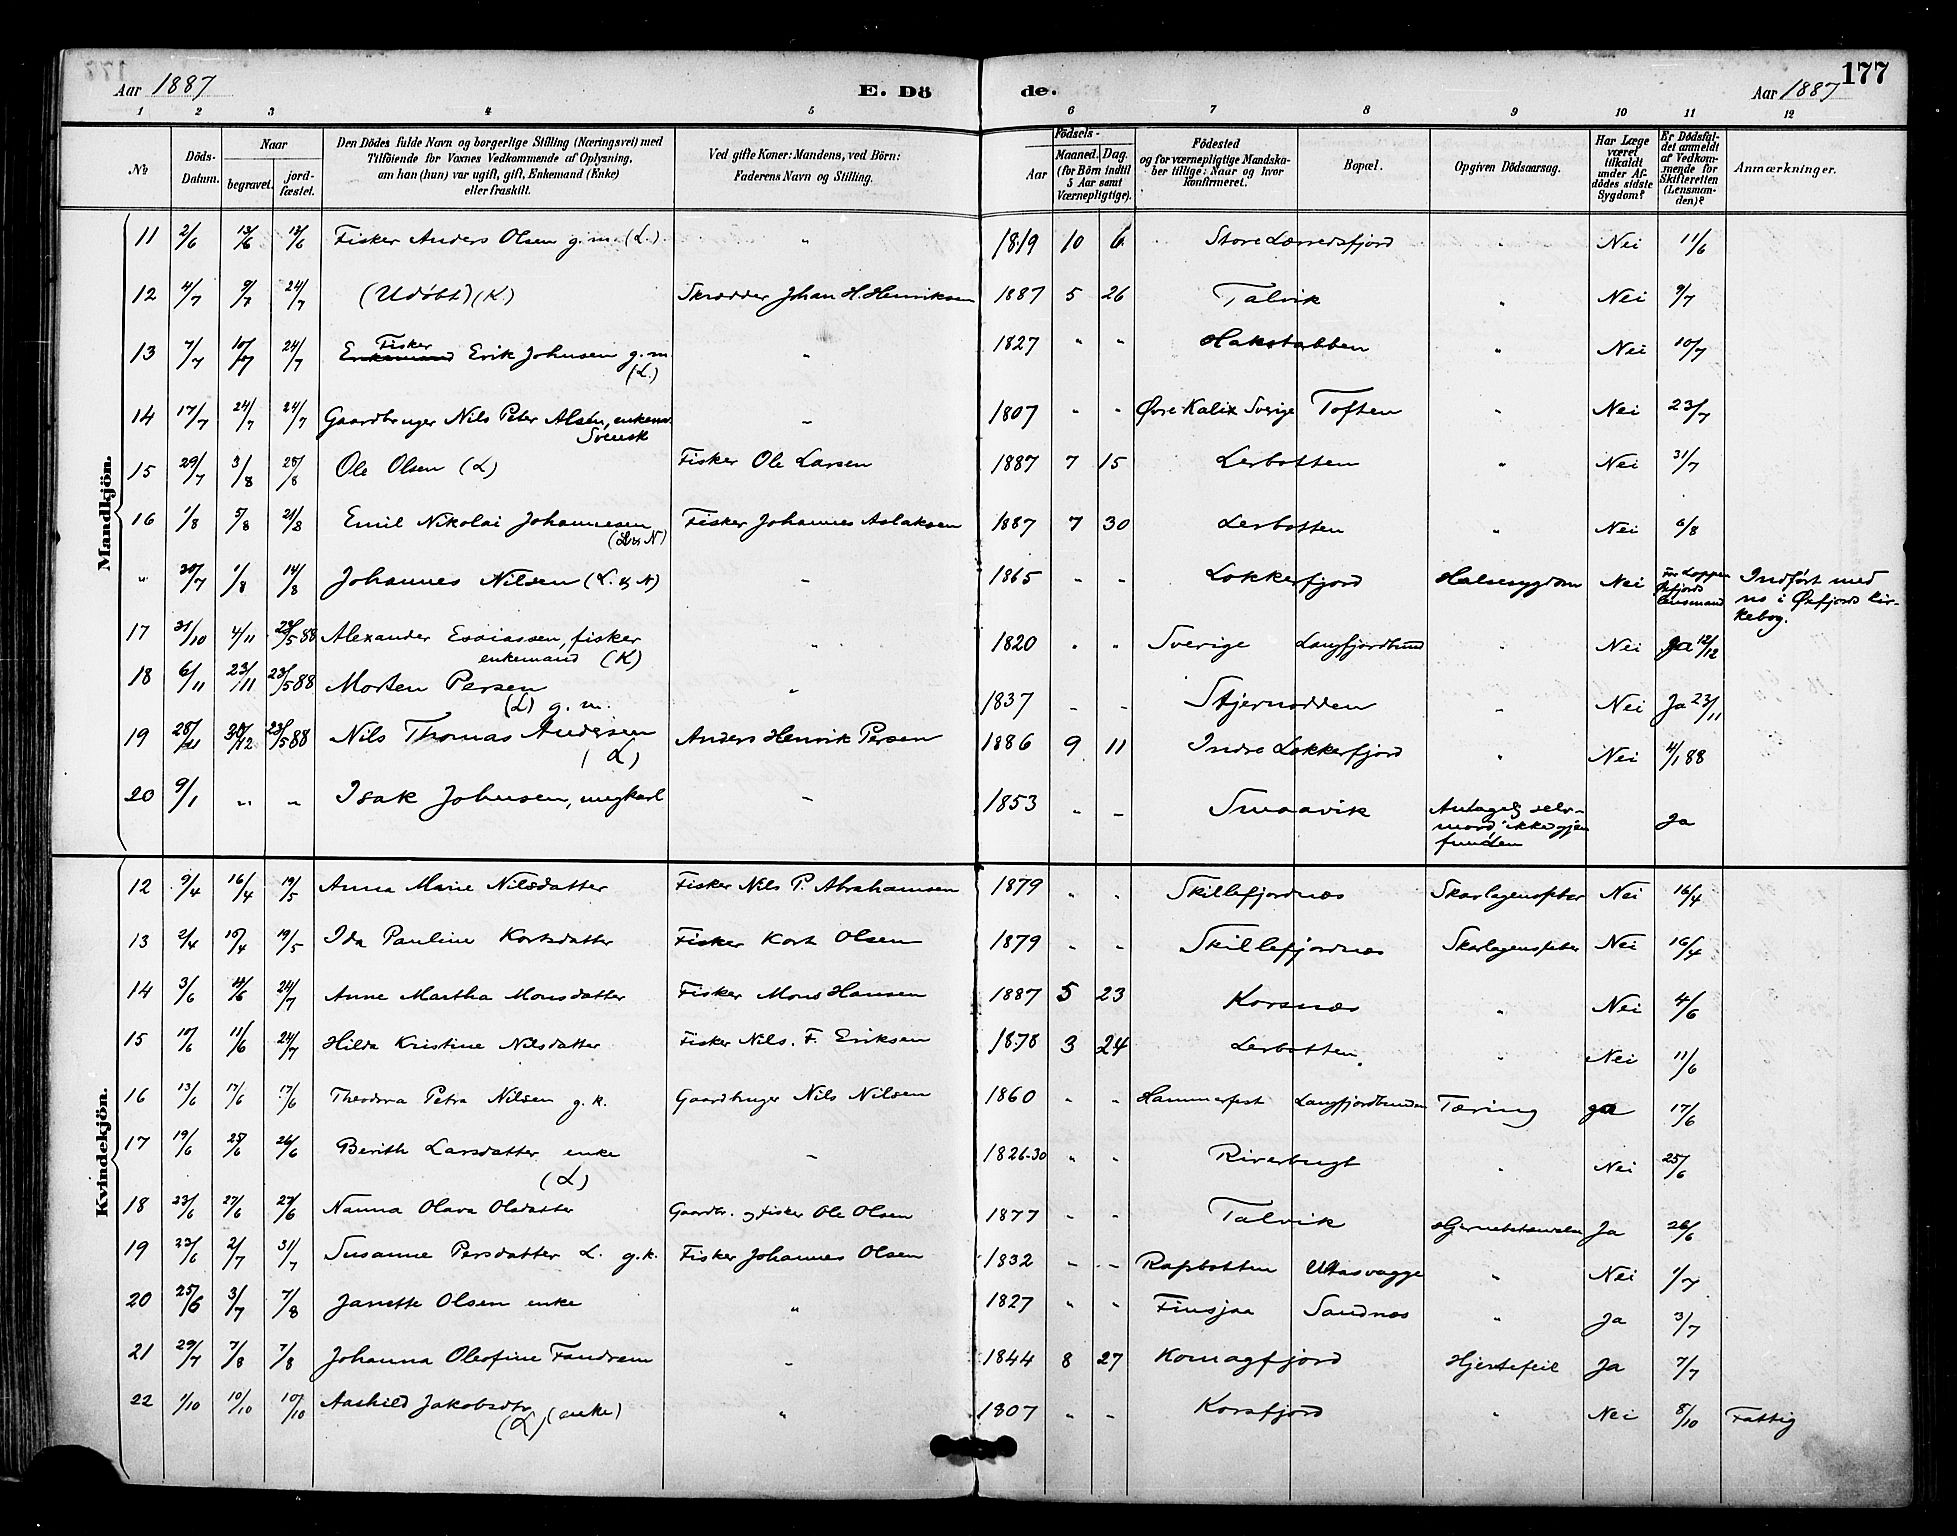 Aar 1887
E. Dö
de.
Aar 1887
177
1 2 3 4 5 6 7 8 9 10 11 12
No
Döds-Datum.
Naar
begravet.
jord-fæstet.
Den Dödes fulde Navn og borgerlige Stilling (Næringsvei) med
Tilföiende for Voxnes Vedkommende af Oplysning,
om han (hun) var ugift, gift, Enkemand (Enke)
eller fraskilt.
Ved gifte Koner: Mandens, ved Börn:
Faderens Navn og Stilling.
Födsels-
Aar
Maaned. Dag.
(for Börn indtil
5 Aar samt
Værnepligtige).
Födested
og for værnepligtige Mandska-
ber tillige: Naar og hvor
konfirmeret.
Bopæl.
Opgiven Dödsaarsag.
Har Læge
været
tilkaldt
under Af-
dödes sidste
Sygdom?
Er Dödsfal-
det anmeldt
af Vedkom-
mende for
Skifteretten
(Lensman-
den)?
Anmærkninger.
Mandkjön.
11 2/6 13/6 13/6 Fisker Anders Olsen g.m. (L.) " 1819 10 6 Store Lerresfjord " Nei 11/6
12 4/7 9/7 24/7 (Udøbt) (K) Skrædder Johan H. Henriksen 1887 5 26 Talvik " Nei 9/7
13 7/7 10/7 24/7 Enkemand Fisker Erik Johnsen g.m. (L.) " 1827 " " Hakstabben " Nei 10/7
14 17/7 24/7 24/7 Gaardbruger Nils Peter Alsén, enkem. Svensk – 1807 " " Øvre Kalix Sverige Toften " Nei 23/7
15 29/7 3/8 28/8 Ole Olsen (L) Fisker Ole Larsen 1887 7 15 Lerbotten " Nei 31/7
16 1/8 5/8 21/8 Emil Nikolai Johannesen (L. & N) Fisker Johannes Aslaksen 1887 7 30 Lerbotten " Nei 6/8
" 30/7 1/8 14/8 Johannes Nilsen (L. & N) – 1865 – – Lokkerfjord Halsesygdom Nei for Loppen Øxfjords lensmand Indført med no i Øxfjords Kir-
kebog.
17 31/10 4/11 23/5 88 Alexander Esaiassen, fisker enkemand (K) " 1820 " " Sverige Langfjordbund " Nei Ja 12/12
18 6/11 23/11 23/5 88 Morten Persen (L) g.m. " 1837 – – Stjernodden " Nei Ja 23/11
19 28/11 30/12 23/5 88 Nils Thomas Andersen (L) Anders Henrik Persen 1886 9 11 Indre Lokkerfjord " Nei 4/1 88
20 9/1 " " Isak Johnsen, ungkarl – 1853 – – Smaavik Antagelig selv-
mord, ikke gjen
funden Ja
Kvindekjön.
12 9/4 16/4 19/5 Anna Marie Nilsdatter Fisker Nils P. Abrahamsen 1879 " " Skillefjordnæs Skarlagensfeber Nei 16/4
13 2/4 15/4 19/5 Ida Pauline Kortsdatter Fisker Kort Olsen 1879 – – Skillefjordnæs Skarlagensfeber Nei 16/4
14 3/6 4/6 24/7 Anne Martha Monsdatter Fisker Mons Hansen 1887 5 23 Korsnæs " Nei 4/6
15 10/6 11/6 24/7 Hilda Kristine Nilsdatter Fisker Nils. F. Eriksen 1878 3 24 Lerbotten " Nei 11/6
16 13/6 17/6 17/6 Theodora Petra Nilsen g.k. Gaardbruger Nils Nilsen 1860 " " Hammerfest Langfjordbunden Tæring Ja 17/6
17 19/6 25/6 26/6 Berith Larsdatter enke (L) – 1826-30 " " Riverbugt " Nei 25/6
18 23/6 27/6 27/6 Nanna Olava Olsdatter Gaardbr. og Fisker Ole Olsen 1877 – – Talvik Ja 26/6
19 23/6 2/7 31/7 Susanne Persdatter L. g.k. Fisker Johannes Olsen 1832 – – Rafsbotten Utasvagge " Nei 1/7
20 25/6 3/7 7/8 Janette Olsen enke " 1827 " " Finsjaa Sandnæs " Ja 3/7
21 29/7 7/8 7/8 Johanna Oleofine Fandrem – 1844 8 27 Komagfjord Hjertefeil Ja 7/7
22 1/10 10/10 10/10 Aashild Jakobsdtr (L) (enke) " 1807 " – Korsfjord " Nei 8/10 Fattig